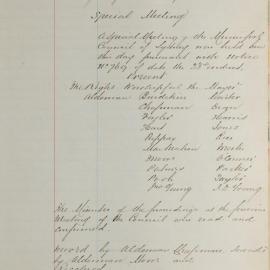 Special Meeting
A Special Meeting of the Municipal
Council of Sydney was held on
this day pursuant with notice
No 769 of date the 23rd instant.
Present
The Right Worshipful the Mayor
Aldermen
Chapman
Taylor Harris
Hart Jones
Kippax
MacMahon Meeks
Moore O'Connor
Palmer Parker
Poole Taylor
Young J. D. Young
The Minutes of the proceedings at the previous
Meeting of the Council was read and
confirmed.
Moved by Alderman Chapman, seconded
by Alderman Moore and